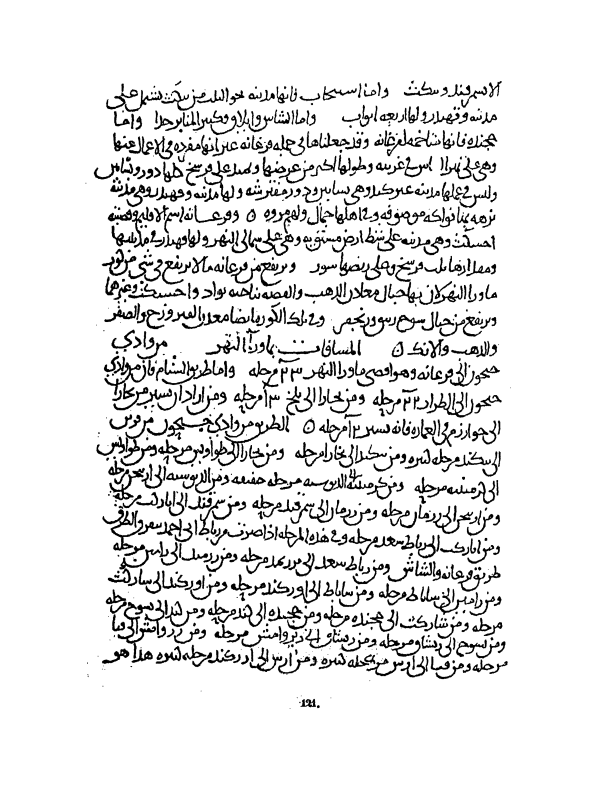 الا سمرقند وسكث واما اسبيجاب فانها مدينه نحو الثلث من سكث تشتمل على
مدينه وقهندز ولها اربعه ابواب واما الشاش وايلاق وكبير المنابر جدا واما
خجنده فانها متاخمه لفرغانه وقد جعلناها فى جمله فرغانه غير انها مفرده فى الاعمال عنها
وهى على نهر الشاس فى غربيه وطولها اكبر من عرضها وتمتد على فرسخ كلها دور وبساتين
وليس فى عملها مدينه غير كند وهى بساتين ودور مفترشه ولها مدينه وقهندز وهى مدينه
نزهه بها فواكه موصوفه وفى اهلها جمال ولهم مروه وفرغانه اسم الاقليم وقصبته
اخسيكث وهى مدينه على شط ارض مستويه وهى على شمالى النهر ولها قهندز فى مدينتها
ومقدارها ثلث فرسخ وعلى ربضها سور ويرتفع من فرغانه مالا يرتفع فى شى من كور
ماورا النهر لان بها جبال معادن الذهب والفضه بناحيه بواد واخسيكث وغيرهما
ويرتفع من جبال سوخ وفى تلك الكوره ايضا معدن الفيروزج والصفر
والذهب والانك المسافات بماورا النهر من وادى
جيحون الى فرغانه وهو اقصى ماورا النهر ٢٣ مرحله واما طريق الشام فان من وادى
جيحون الى الطراز ٢٢ مرحله ومن بخارا الى بلخ ١٣ مرحله ومن اراد ان يسير من بخارا
الى خوارزم فى العماره فانه يسير ١٢ مرحله الطريق من وادى جيحون من فربر
الى بيكند مرحله كبيره ومن بيكند الى بخارا مرحله ومن بخارا الى طواويس مرحله ومن طواويس
الى كرمينيه مرحله ومن كرمينيه الى الدبوسيه مرحله خفيفه ومن الدبوسيه الى اربنجن مرحله
ومن اربنجن الى زرمان مرحله ومن زرمان الى سمرقند مرحله ومن سمرقند الى اباركث مرحله
ومن اباركث الى رباط سعد مرحله وفى هذه المرحله اذا صرف من رباط ابى احمد يتفرق الطرق
طريق فرغانه والشاش ومن رباط سعد الى بورنمد مرحله ومن زمين الى رامين مرحله
ومن رامين الى ساباط مرحله ومن ساباط الى اوركند مرحله ومن اوركند الى ساركث
مرحله ومن شاركث الى خجنده مرحله ومن خجنده الى كند مرحله ومن كند الى سوخ مرحله
ومن سوخ الى رشتان مرحله ومن رشتان الى زندرامش مرحله ومن زندرامش الى قبا
مرحله ومن قبا الى اوش مرحله كبيره ومن اوش الى اوزكند مرحله كبيره هذا هو
121.